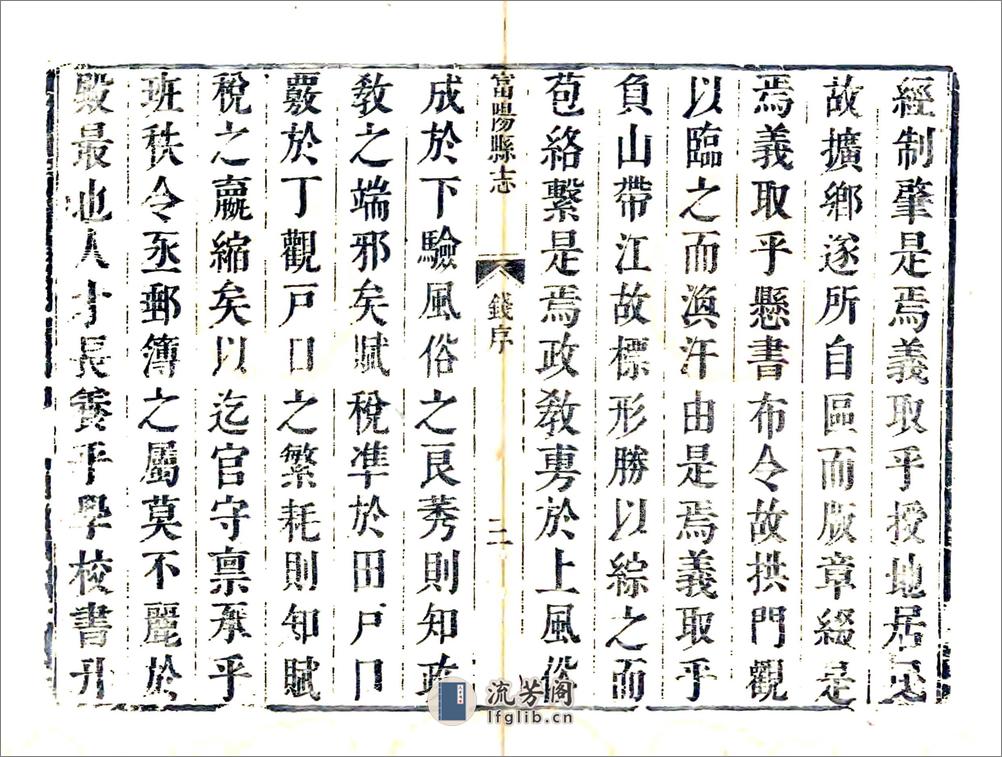 經制肇是焉義取乎授地居民
故擴鄉遂所自區而版章綴是
焉義取乎懸書布令故拱門觀
以臨之而渙汗由是焉義取乎
負山帶江故標形勝以綜之而
苞絡繫是焉政敎專於上風俗
富陽縣志 錢序 二
成於下驗風俗之良莠則知政
敎之端邪矣賦稅準於田戸口
覈於丁觀戸口之繁耗則知賦
稅之贏縮矣以迄官守禀承乎
班秩令丞郵簿之屬莫不麗於
殿最也人才長養乎學校書升
流芳阁
lfglib.cn